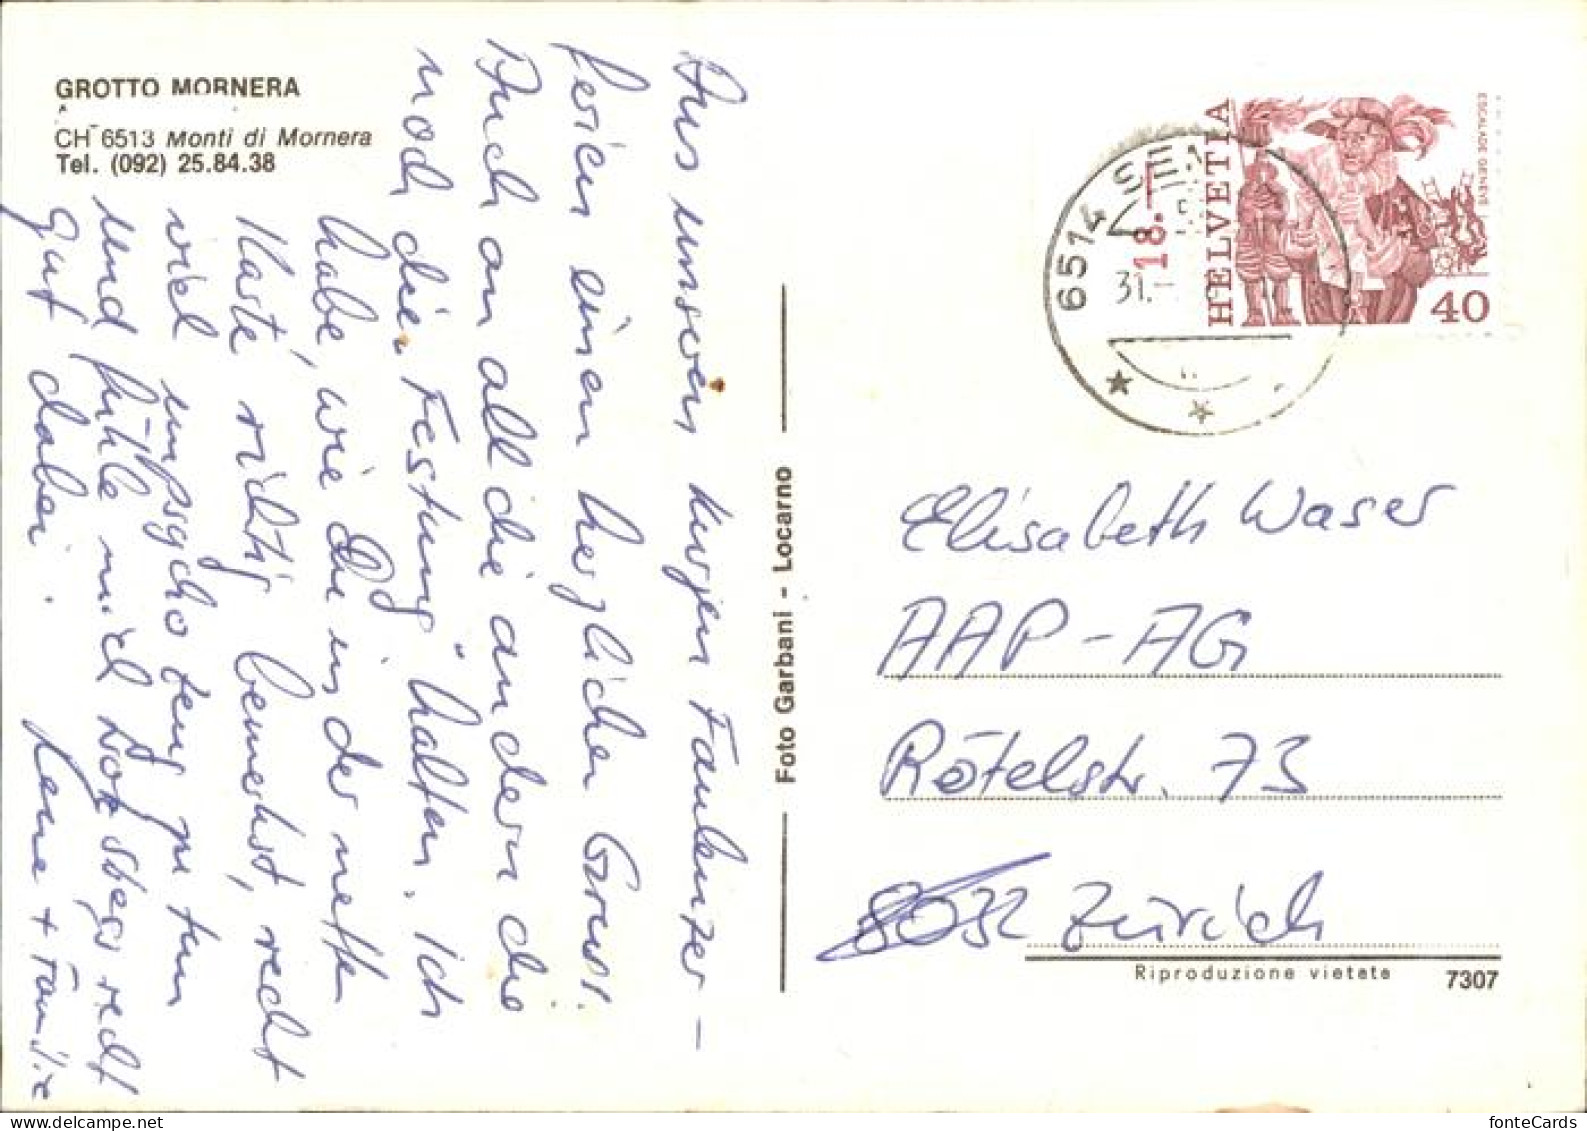 GROTTO MORNERA
CH 6513 Monti di Mornera
Tel. (092) 25.84.38
Aus unseren kurzen Faulenzer-
ferien einen herzlichen Gruss.
Auch an all die andern die
noch die "Festung" halten. Ich
habe, wie Du in der netten
Karte richtig bemerkst, recht
viel umpsychoteng zu tun
und fühle mich trotz recht
gut dabei.
+ Familie
Foto Garbani - Locarno
6514 SEM
31.-
18.-
HELVETIA
ESCALADE GENÈVE
40
Elisabeth Waser
AAP-AG
Rötelstr. 73
8032 Zürich
Riproduzione vietata
7307
fonteCards